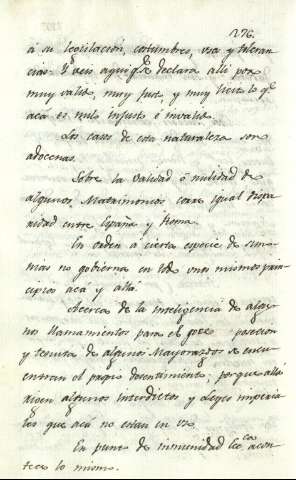 276.
á su legislacion, costumbres, usos y toleran
cias. Y veis aqui q.e se declara alli por
muy valido, muy justo, y muy licito lo q.e
acá es nulo injusto é invalido.
Los casos de esta naturaleza son
adocenas.
Sobre la validad ó nulidad de
algunos Matrimonios corre igual dispa
ridad entre España y Roma.
En orden á cierta especie de simo
nias no gobierna en todo unos mismos prin
cipios acá y allá.
Acerca de la inteligencia de algu
nos llamamientos para el goce posesion
y tenuta de algunos Mayorazgos se encu
entran el propio disentimiento, porque allá
rigen algunos interdictos y Leyes imperia
les que acá no estan en uso.
En punto de inmunidad acon
tece lo mismo.